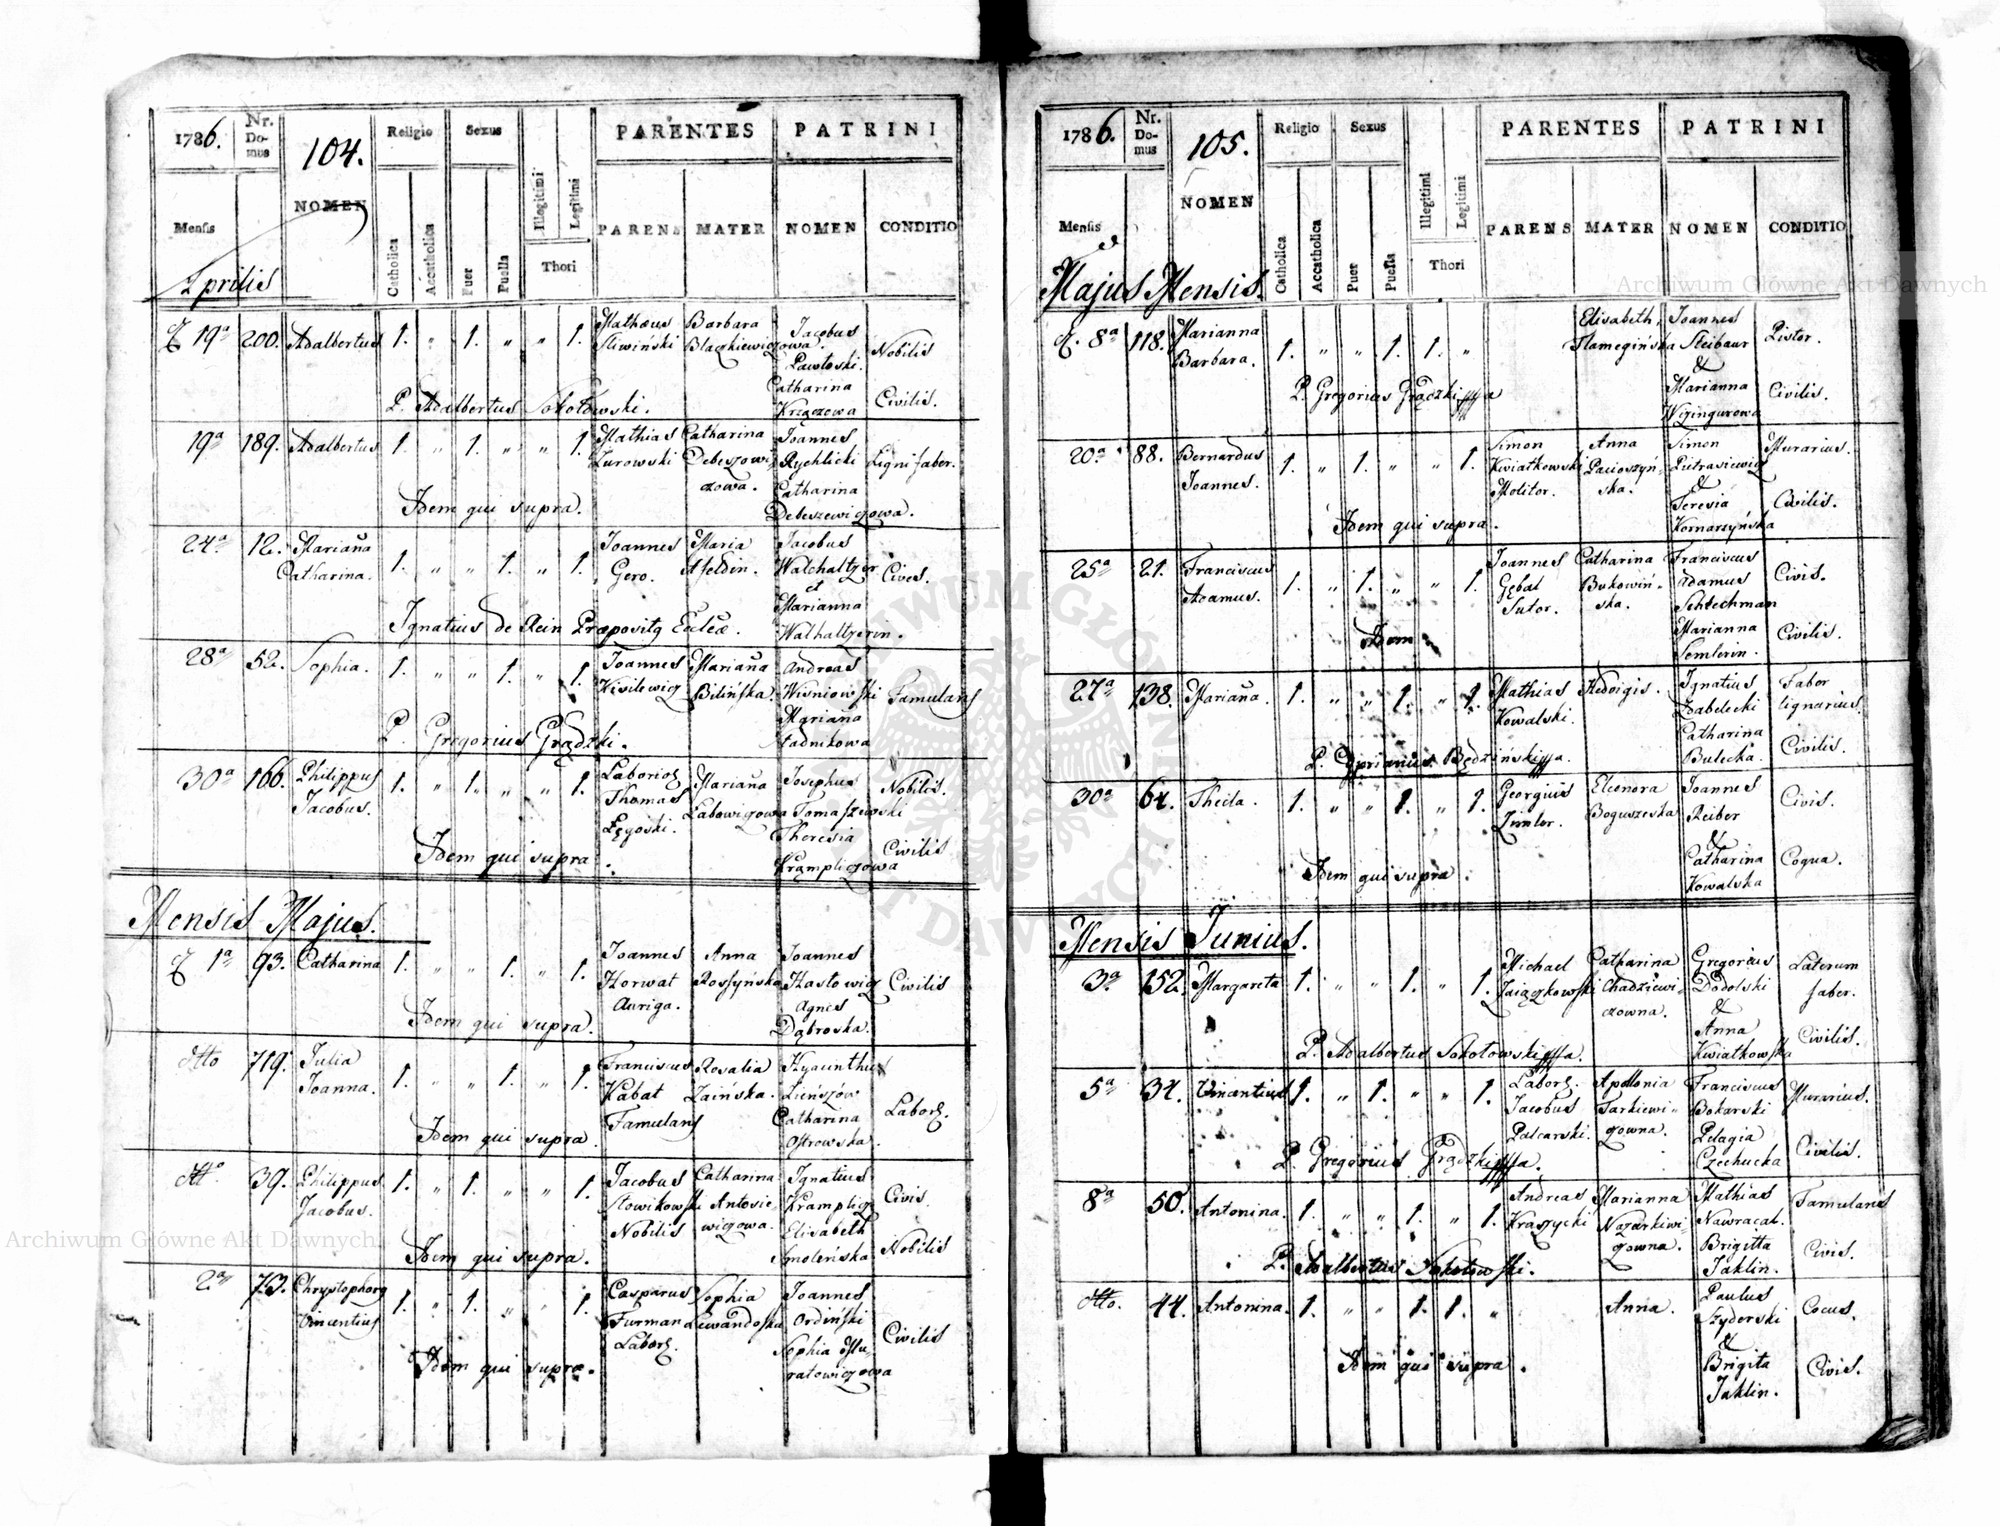 1786.
Nr. Domus
104.
NOMEN
Religio
Sexus
PARENTES
PATRINI
Mensis
Catholica
Accatholica
Puer
Puella
Illegitimi
Legitimi
Thori
PARENS
MATER
NOMEN
CONDITIO
Aprilis
19a 200. Adalbertus 1. " 1. " " 1. Mathæus Barbara Jacobus Nobilis
Sliwiński Blaczkiewiczowa. Pawłoski.
Catharina
P. Adalbertus Sokołowski. Krzączowa Civilis.
19a 189. Adalbertus 1. " 1. " " 1. Mathias Catharina Joannes
Zurowski Debeszewiczowa. Rychlicki Ligni faber.
Catharina
Idem qui supra. Debeszewiczowa.
24a 12. Mariana 1. " " 1. " 1. Joannes Maria Jacobus
Catharina. Gero. Afeldin. Walchaltzer Cives.
et
Marianna
Ignatius de Rein Præpositg Eccleæ. Walhaltzerin.
28a 52. Sophia. 1. " " 1. " 1. Joannes Mariana Andreas
Kisilewicz Bilińska. Wisniowski Famulans
Mariana
P. Gregorius Grądzki. Stadnikowa
30a 166. Philippus 1. " 1. " " 1. Laborios Mariana Josephus Nobilis.
Jacobus. Thomas Labowiczowa Tomaszewski
Łęgoski. Theresia
Idem qui supra. Krampliczowa Civilis
Mensis Majus.
1a 93. Catharina 1. " " 1. " 1. Joannes Anna Joannes
Horwat Rossyńska Hastowicz Civilis
Auriga. Agnes
Idem qui supra. Dąbroska.
dtto 719. Julia 1. " " 1. " 1. Franciscus Rosalia Hyacinthus
Joanna. Kabat Zaińska. Zieńszów
Famulans Catharina Labors.
Idem qui supra. Ostrowska.
dtto 39. Philippus 1. " 1. " " 1. Jacobus Catharina Ignatius
Jacobus. Słowikowski Antosiewiczowa. Kramplicz Civis.
Nobilis Elisabeth
Idem qui supra. Smoleńska Nobilis
2a 73. Chrystophorg 1. " 1. " " 1. Casparus Sophia Joannes
Vincentius Furman Lewandoska Ordiński Civilis
Labors. Sophia Muratowiczowa
Idem qui supra.
1786.
Nr. Domus
105.
NOMEN
Religio
Sexus
PARENTES
PATRINI
Mensis
Catholica
Accatholica
Puer
Puella
Illegitimi
Legitimi
Thori
PARENS
MATER
NOMEN
CONDITIO
Majus Mensis.
8a 118. Marianna 1. " " 1. 1. " Elisabeth Joannes Pistor.
Barbara. Flamegińska Steibaur
&
P. Gregorius Grądzki Marianna Civilis.
Wizingurowa
20a 88. Bernardus 1. " 1. " " 1. Simon Anna Simon Murarius.
Joannes. Kwiatkowski Pacioszyńska. Pietrasiewicz
Molitor. &
Teresia Civilis.
Idem qui supra. Kornarzyńska
25a 21. Franciscus 1. " 1. " " 1. Joannes Catharina Franciscus
Adamus. Gębal Bukowińska. Adamus Civis.
Sutor. Schlechman
Idem Marianna Civilis.
Semlerin.
27a 138. Mariana. 1. " " 1. " 1. Mathias Hedvigis. Ignatius Faber
Kowalski. Zabelecki lignarius.
Catharina
P. Cyprianus Będziński Bulecka. Civilis.
30a 64. Theila. 1. " " 1. " 1. Georgius Eleonora Joannes Civis.
Zimler. Boguszeska Reiber
&
Idem qui supra. Catharina Coqua.
Kowalska
Mensis Junius.
3a 152. Margareta 1. " " 1. " 1. Michael Catharina Gregorius Laterum
Zaiączkowski Chadziewiczowna. Dodolski faber.
&
Anna Civilis.
P. Adalbertus Sokołowski Kwiatkowska
5a 34. Vincentius 1. " 1. " " 1. Labors. Apollonia Franciscus Murarius.
Jacobus Tarkiewiczowna. Bokarski
Palcarski. Pelagia Civilis.
P. Gregorius Grądzki Czechucka
8a 50. Antonina. 1. " " 1. " 1. Andreas Marianna Mathias Famulans
Kraszycki Nazarkiwiczowna. Nawracał.
Brigitta Civis.
P. Adalbertus Sokołowski. Jaklin.
dtto. 44. Antonina. 1. " " 1. 1. " Anna. Paulus Cocus.
Szyderski
&
Idem qui supra. Brigita Civis.
Jaklin.
Archiwum Główne Akt Dawnych
Archiwum Główne Akt Dawnych
ARCHIWUM GŁÓWNE AKT DAWNYCH